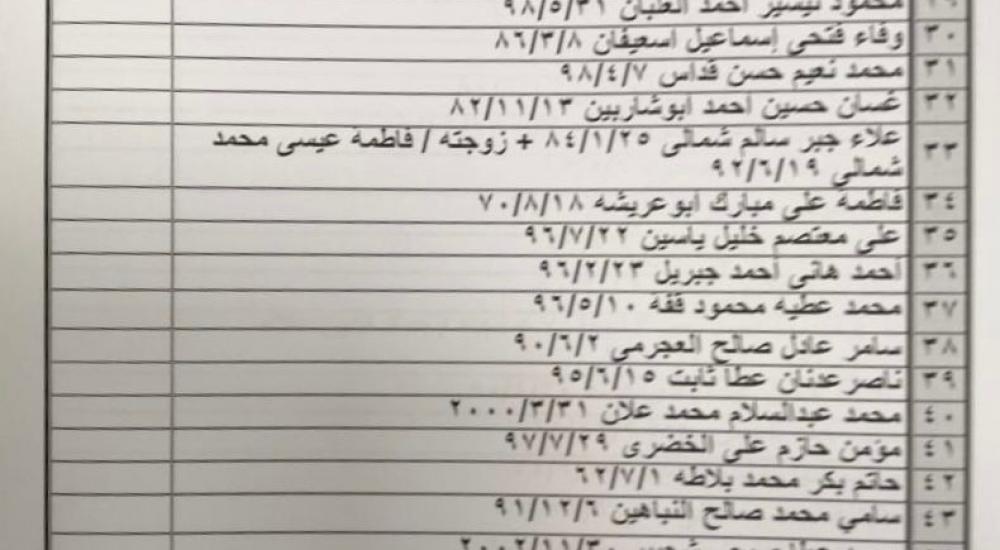 ٢٩ محمود تيسير احمد العلبان ٩٨/٥/٣١
٣٠ وفاء فتحي إسماعيل اسعيفان ٨٦/٣/٨
٣١ محمد نعيم حسن قداس ٩٨/٤/٧
٣٢ غسان حسين احمد ابوشاربين ٨٢/١١/١٣
٣٣ علاء جبر سالم شمالى ٨٤/١/٢٥ + زوجته / فاطمة عيسى محمد
شمالي ٩٢/٦/١٩
٣٤ فاطمة على مبارك ابوعريشه ٧٠/٨/١٨
٣٥ على معتصم خليل ياسين ٩٦/٧/٢٢
٣٦ أحمد هانى أحمد جبريل ٩٦/٢/٢٣
٣٧ محمد عطيه محمود فقة ٩٦/٥/١٠
٣٨ سامر عادل صالح العجرمي ٩٠/٦/٢
٣٩ ناصر عدنان عطا ثابت ٩٥/٦/١٥
٤٠ محمد عبدالسلام محمد علان ٢٠٠٠/٣/٣١
٤١ مؤمن حازم على الخضرى ٩٧/٧/٢٩
٤٢ حاتم بكر محمد بلاطه ٦٢/٧/١
٤٣ سامي محمد صالح النباهين ٩١/١٢/٦
٢٠٠٢/١١/٣٠